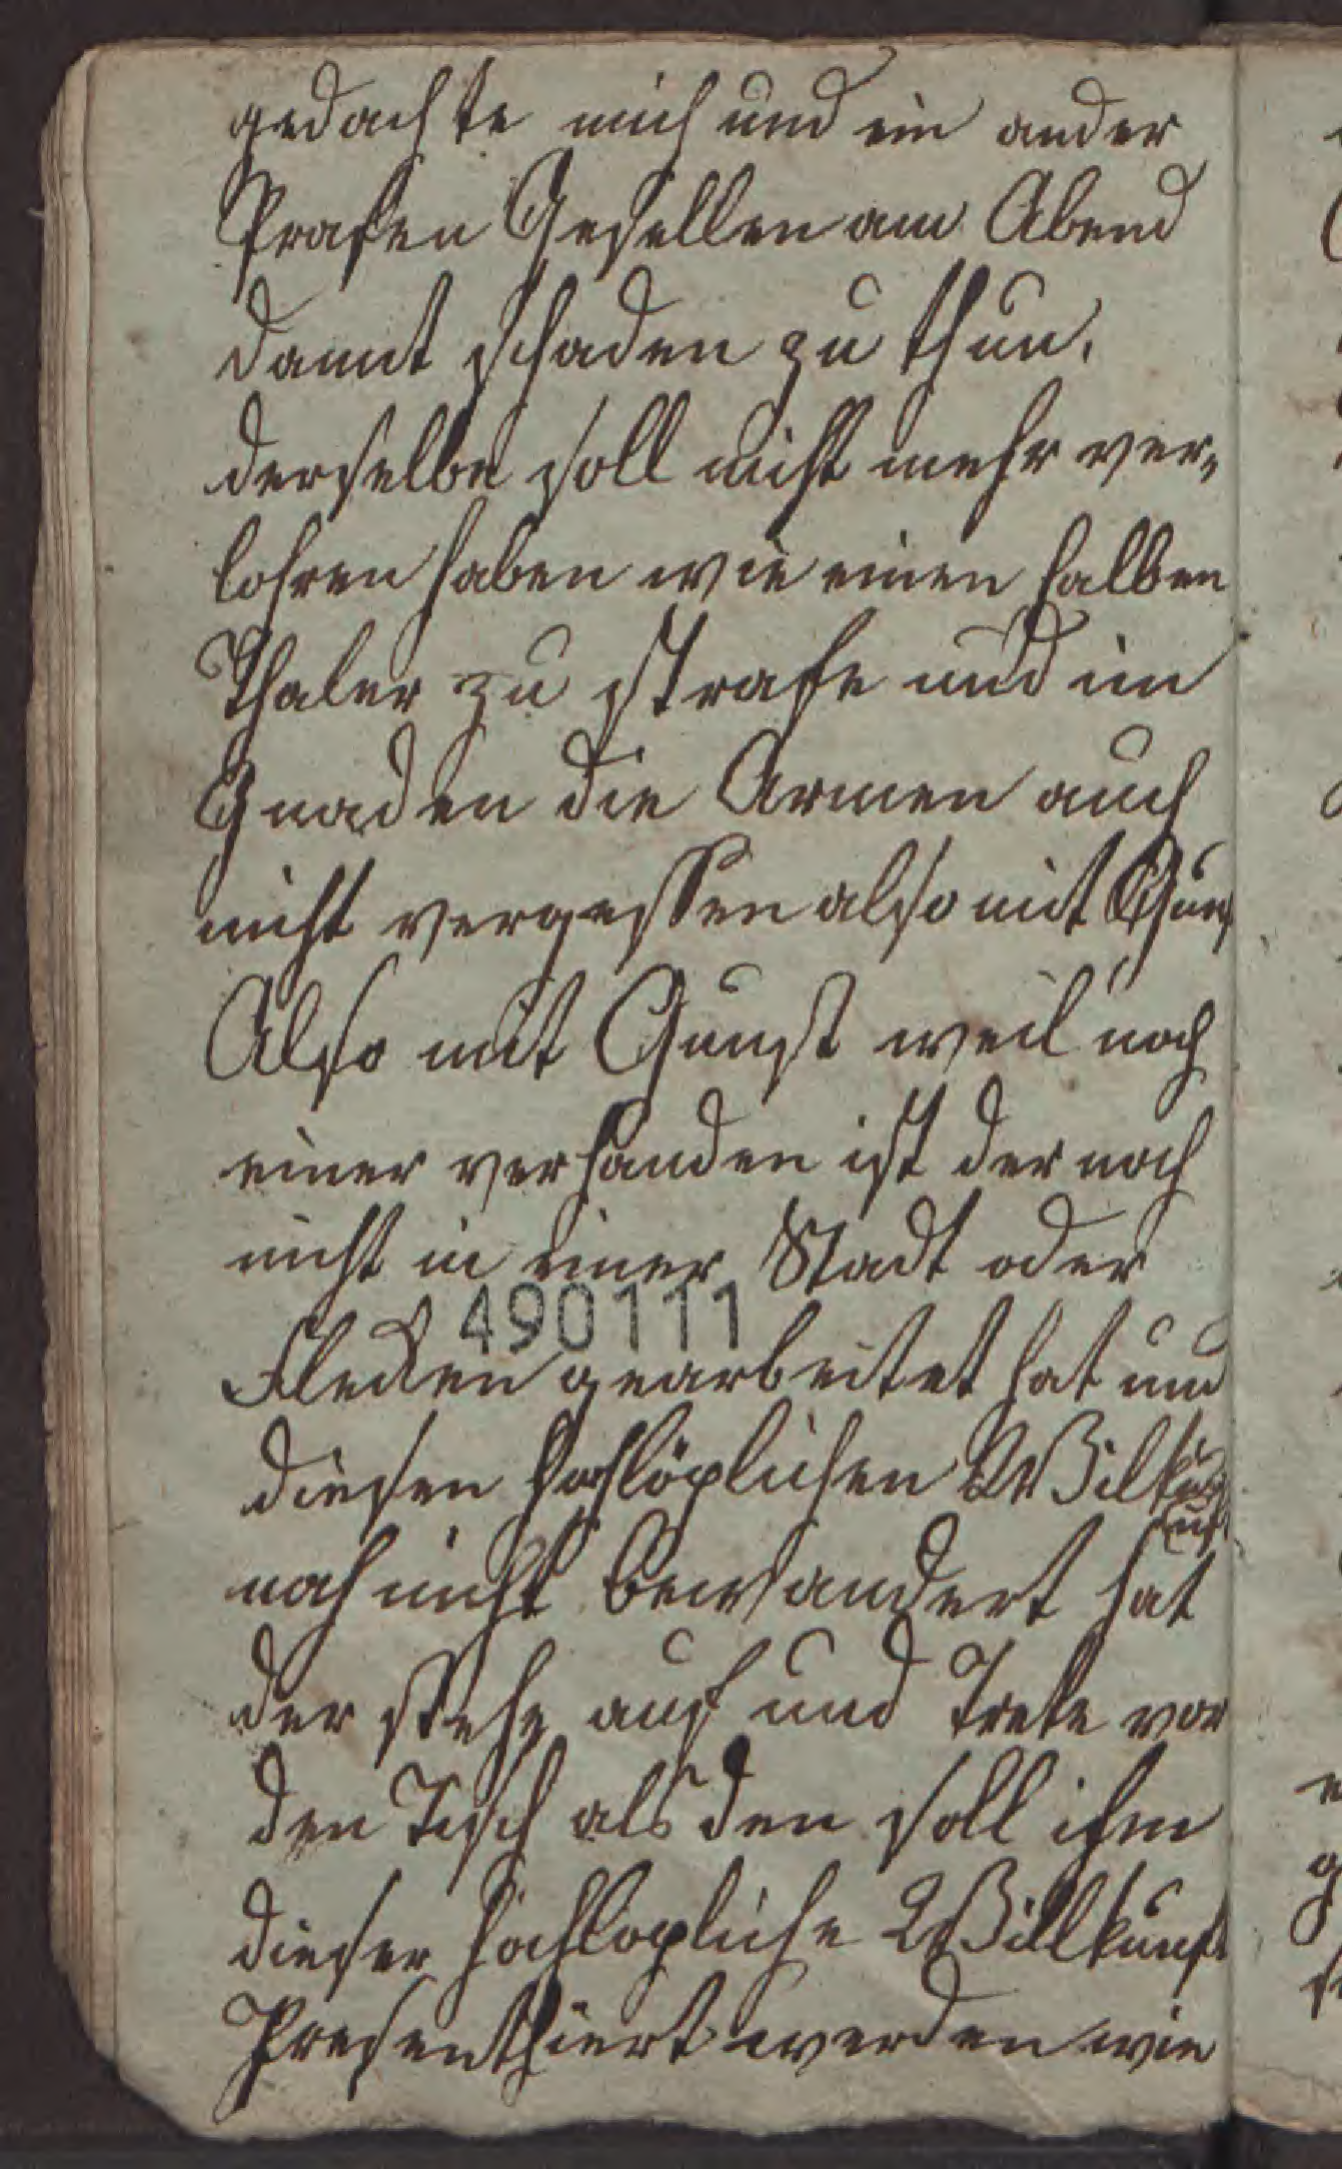 gedachte mich und ein ander
Prafen Gesellen am Abend
damit schaden zu thun.
derselbe soll nicht mehr ver„
lohren haben wie einen halben
Thaler zu strafe und im
Gnaden die Armen auch
nicht vergessen also mit Guns
Also mit Gunst weil noch
einer verhanden ist der noch
nicht in einer Stadt oder
490111
Flecken gearbeitet hat und
diesen hochlöplichen Willkü
noch nicht bewandert hat
der stehe auf und Trete vor
den Tisch als den soll ihm
dieser hochlopliche Willkunft
Presenthiert werden wie